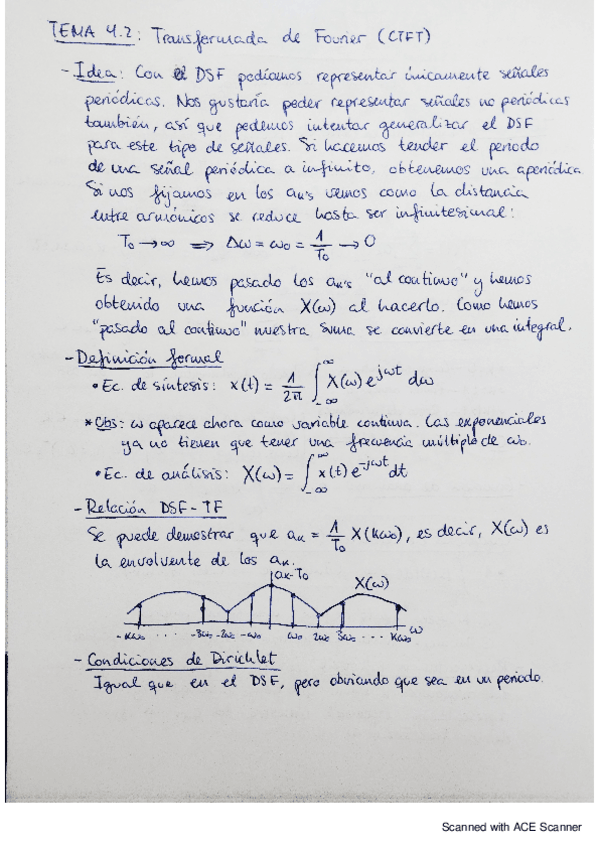 TEMA 4.2: Transformada de Fourier (CTFT)
- Idea: Con el DSF podíamos representar únicamente señales
periódicas. Nos gustaría poder representar señales no periódicas
también, así que podemos intentar generalizar el DSF
para este tipo de señales. Si hacemos tender el periodo
de una señal periódica a infinito, obtenemos una aperiódica.
Si nos fijamos en los aₖ's vemos como la distancia
entre armónicos se reduce hasta ser infinitesimal:
T₀ → ∞ ⇒ Δω = ω₀ = 1/T₀ → 0
Es decir, hemos pasado los aₖ's "al continuo" y hemos
obtenido una función X(ω) al hacerlo. Como hemos
"pasado al continuo" nuestra suma se convierte en una integral.
- Definición formal
• Ec. de síntesis: x(t) = 1/2π ∫_{-∞}^{∞} X(ω) e^{jωt} dω
* Obs: ω aparece ahora como variable continua. Las exponenciales
ya no tienen que tener una frecuencia múltiple de ω₀.
• Ec. de análisis: X(ω) = ∫_{-∞}^{∞} x(t) e^{-jωt} dt
- Relación DSF - TF
Se puede demostrar que aₖ = 1/T₀ X(kω₀), es decir, X(ω) es
la envolvente de los aₖ.
aₖ·T₀
X(ω)
-kω₀ ... -3ω₀ -2ω₀ -ω₀ ω₀ 2ω₀ 3ω₀ ... kω₀ ω
- Condiciones de Dirichlet
Igual que en el DSF, pero obviando que sea en un periodo.
Scanned with ACE Scanner